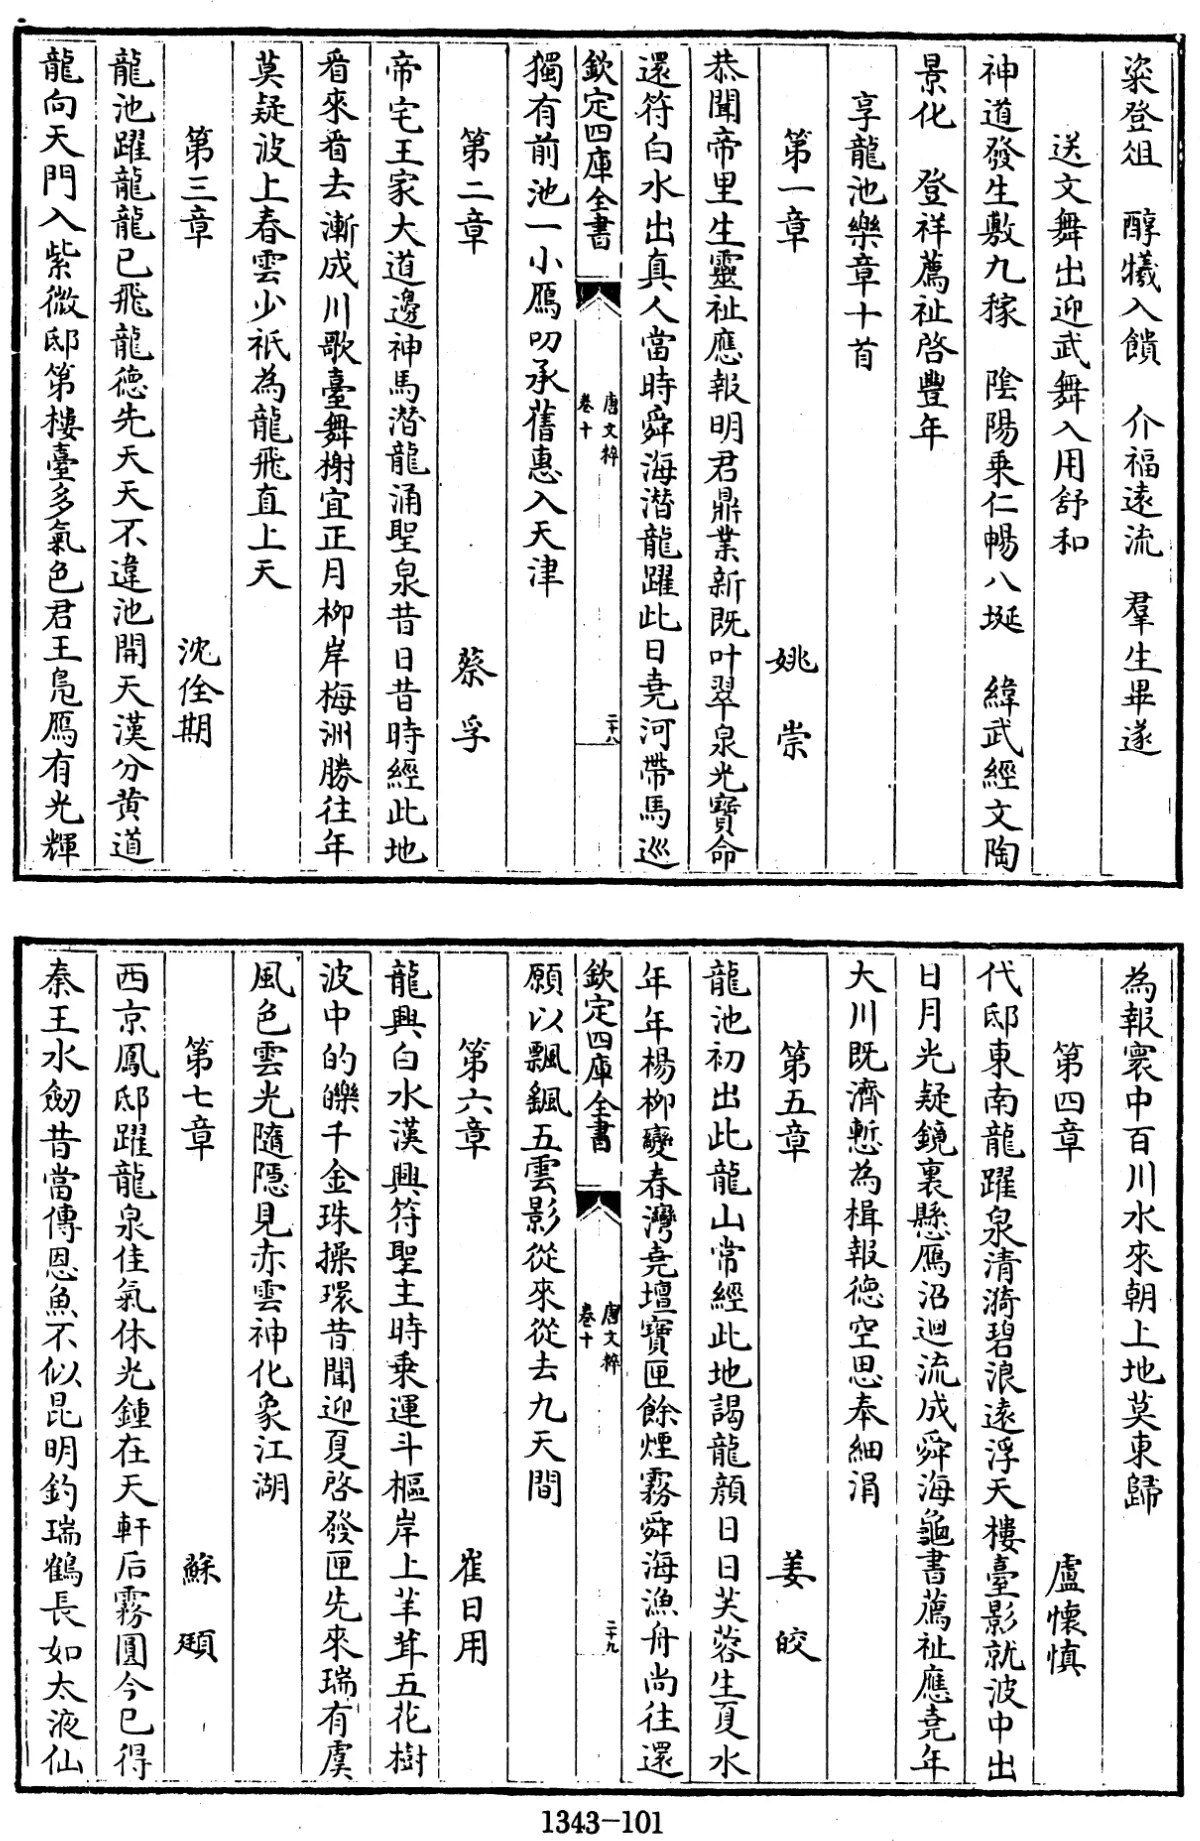 粢登俎　醇犧入饋　介福遠流　羣生畢遂
送文舞出迎武舞入用舒和
神道發生敷九稼　陰陽乘仁暢八埏　緯武經文陶
景化　登祥薦祉啓豐年
享龍池樂章十首
第一章　姚崇
恭聞帝里生靈祉應報明君鼎業新既叶翠泉光寶命
還符白水出真人當時舜海潛龍躍此日堯河帶馬巡
欽定四庫全書　唐文粹卷十　二十八
獨有前池一小鴈叨承舊惠入天津
第二章　蔡孚
帝宅王家大道邊神馬潛龍涌聖泉昔日昔時經此地
看來看去漸成川歌臺舞榭宜正月柳岸梅洲勝往年
莫疑波上春雲少祇為龍飛直上天
第三章　沈佺期
龍池躍龍龍已飛龍德先天天不違池開天漢分黄道
龍向天門入紫微邸第樓臺多氣色君王鳧鴈有光輝
為報寰中百川水來朝上地莫東歸
第四章　盧懷慎
代邸東南龍躍泉清漪碧浪遠浮天樓臺影就波中出
日月光疑鏡裏懸鴈沼迴流成舜海龜書薦祉應堯年
大川既濟慙為楫報德空思奉細涓
第五章　姜皎
龍池初出此龍山常經此地謁龍顔日日芙蓉生夏水
年年楊柳變春灣堯壇寶匣餘煙霧舜海漁舟尚往還
欽定四庫全書　唐文粹卷十　二十九
願以飄颻五雲影從來從去九天間
第六章　崔日用
龍興白水漢興符聖主時乘運斗樞岸上芊茸五花樹
波中的皪千金珠操環昔聞迎夏啓發匣先來瑞有虞
風色雲光隨隱見赤雲神化象江湖
第七章　蘇頲
西京鳳邸躍龍泉佳氣休光鍾在天軒后霧圓今已得
秦王水劒昔當傳恩魚不似昆明釣瑞鶴長如太液仙
1343-101